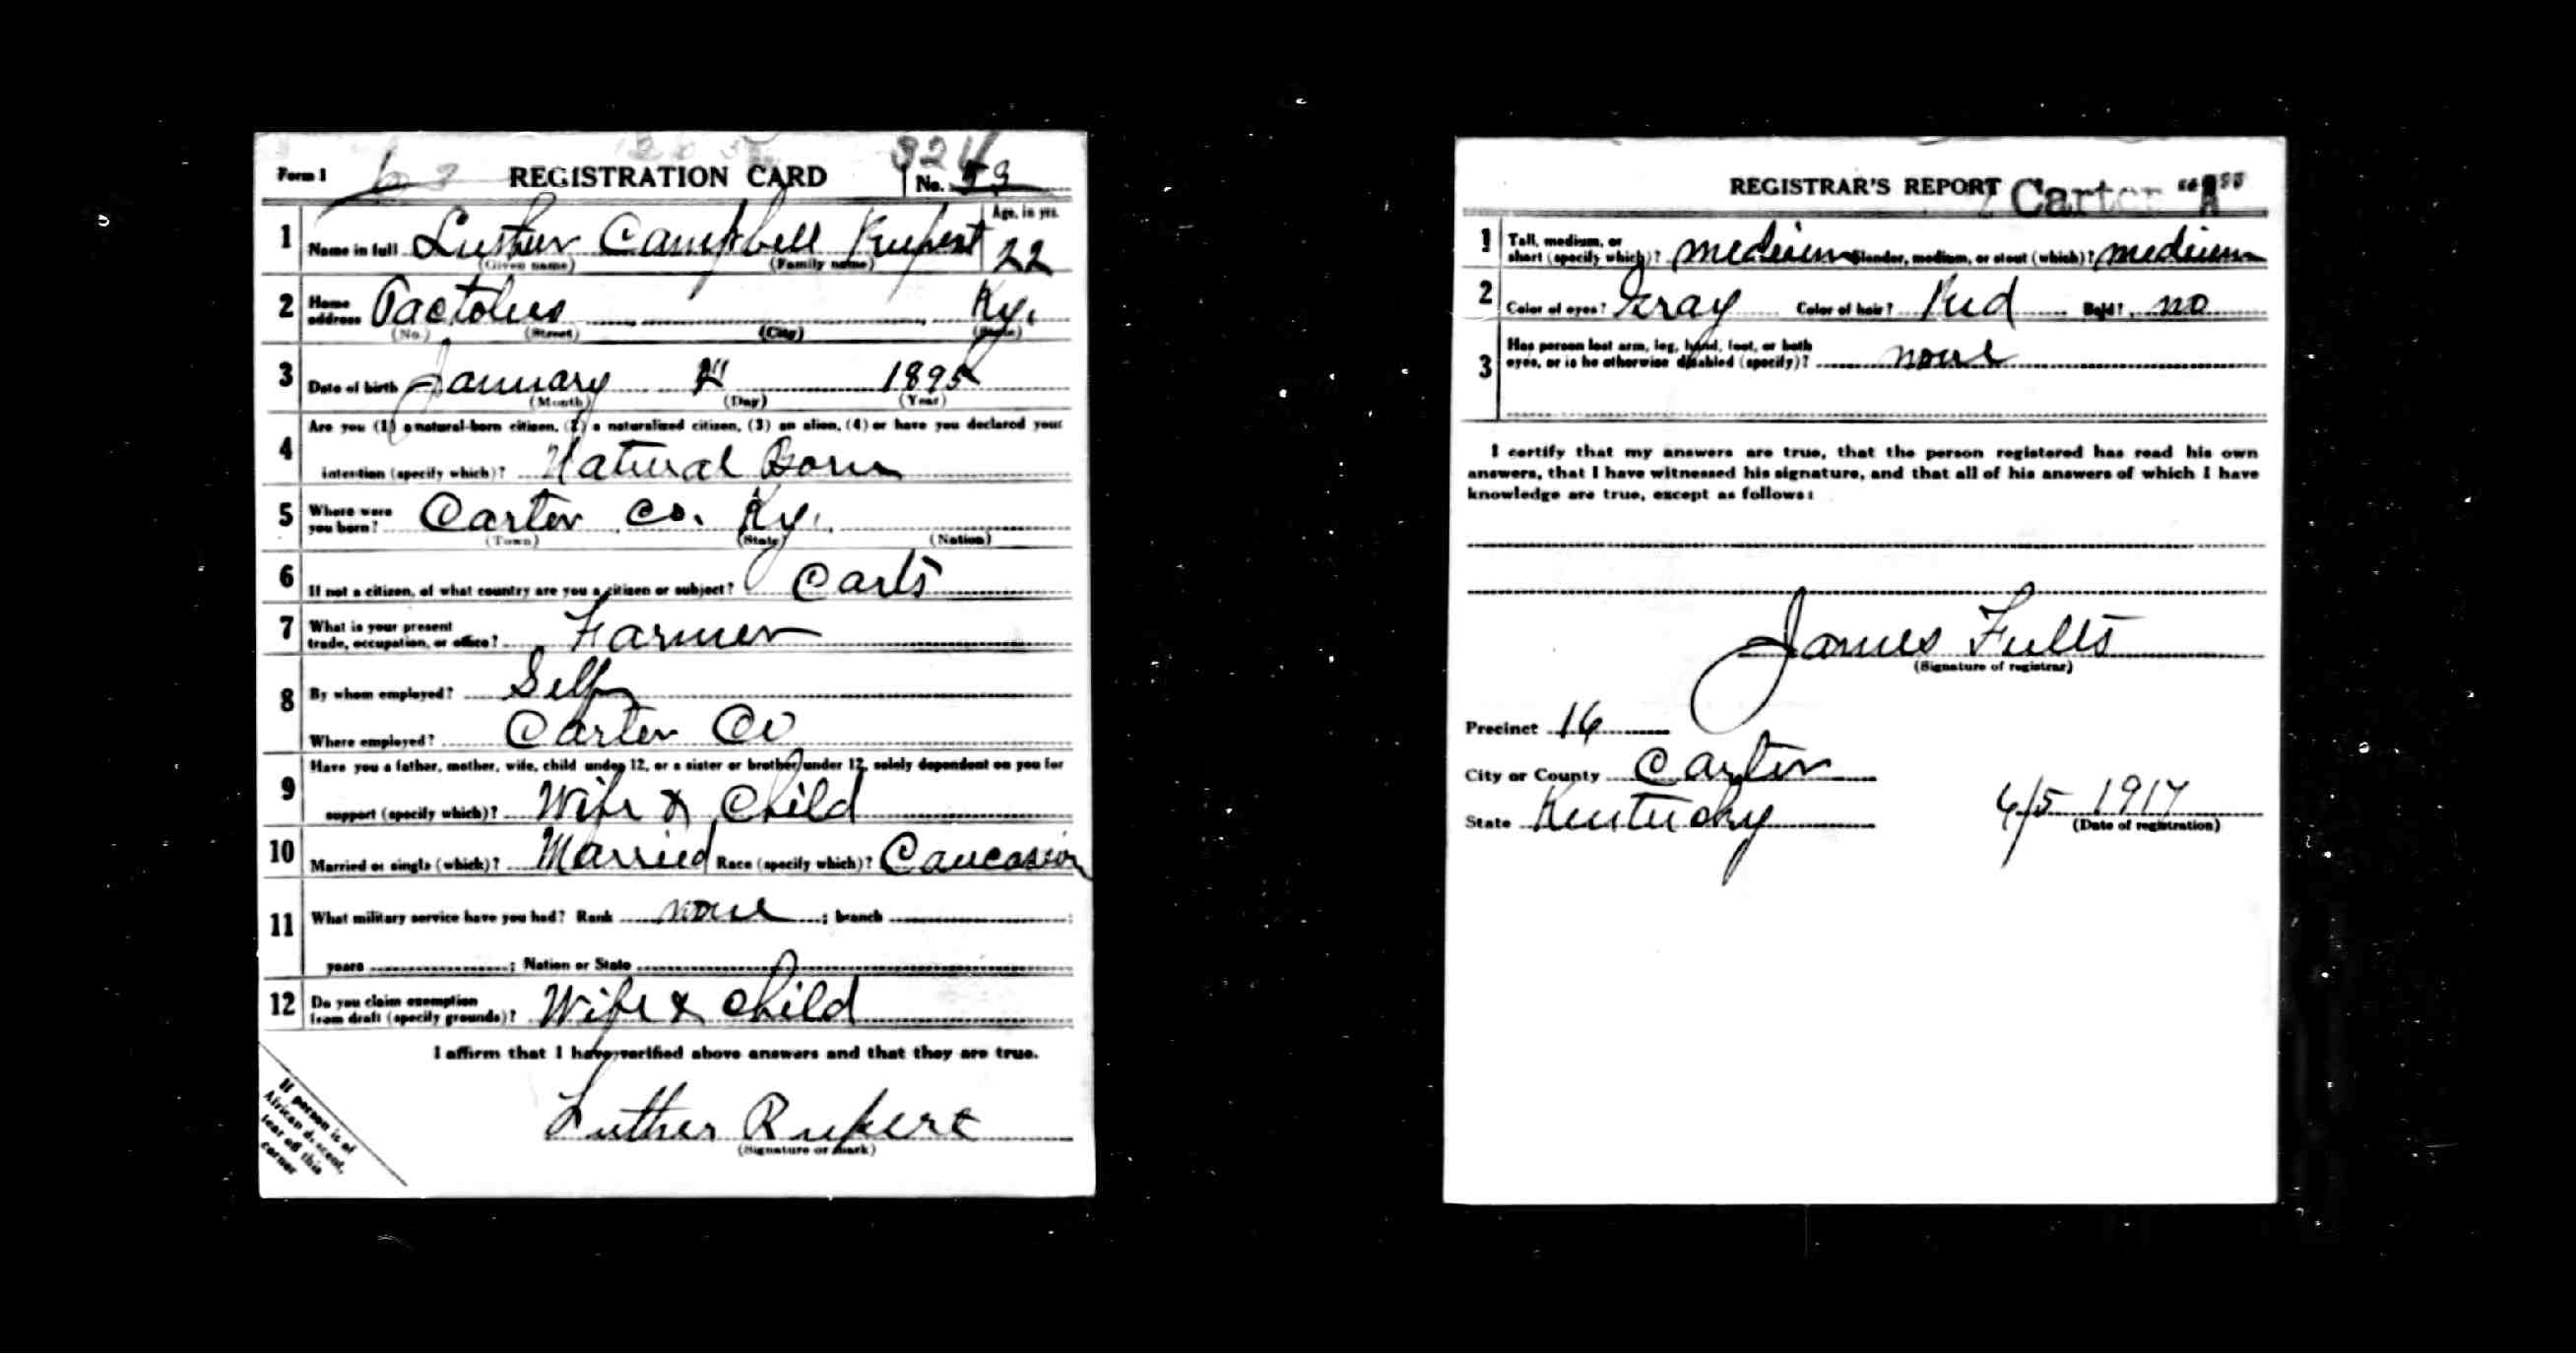 Form 1 REGISTRATION CARD No. 53
1 Name in full Luther Campbell Rupert Age, in yrs. 22
(Given name) (Family name)
2 Home address Pactolus Ky.
(No.) (Street) (City) (State)
3 Date of birth January 1895
(Month) (Day) (Year)
4 Are you (1) a natural-born citizen, (2) a naturalized citizen, (3) an alien, (4) or have you declared your
intention (specify which)? Natural Born
5 Where were you born? Carter Co. Ky.
(Town) (State) (Nation)
6 If not a citizen, of what country are you a citizen or subject?
7 What is your present trade, occupation, or office? Farmer
8 By whom employed? Self
Where employed? Carter Co
9 Have you a father, mother, wife, child under 12, or a sister or brother under 12, solely dependent on you for
support (specify which)? Wife & Child
10 Married or single (which)? Married Race (specify which)? Caucasion
11 What military service have you had? Rank none ; branch ;
years ; Nation or State
12 Do you claim exemption from draft (specify grounds)? Wife & child
I affirm that I have verified above answers and that they are true.
Luther Rupert
(Signature or mark)
If person is of
African descent,
tear off this
corner
REGISTRAR'S REPORT Carter "A"
1 Tall, medium, or short (specify which)? medium Slender, medium, or stout (which)? medium
2 Color of eyes? Gray Color of hair? Red Bald? no
3 Has person lost arm, leg, hand, foot, or both
eyes, or is he otherwise disabled (specify)? none
I certify that my answers are true, that the person registered has read his own
answers, that I have witnessed his signature, and that all of his answers of which I have
knowledge are true, except as follows:
James Fults
(Signature of registrar)
Precinct 16
City or County Carter
State Kentucky 6/5 1917
(Date of registration)